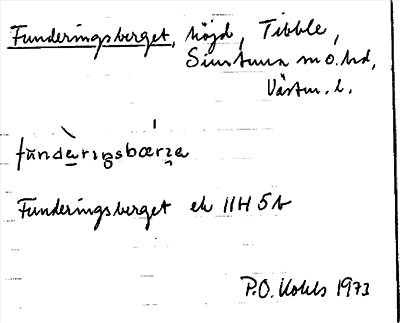 Funderingsberget, höjd, Tibble,
Simtuna sn o. hd,
Västm. l.
fùndəriŋsbærjə
Funderingsberget ek 11H 5b
P.O. 1973